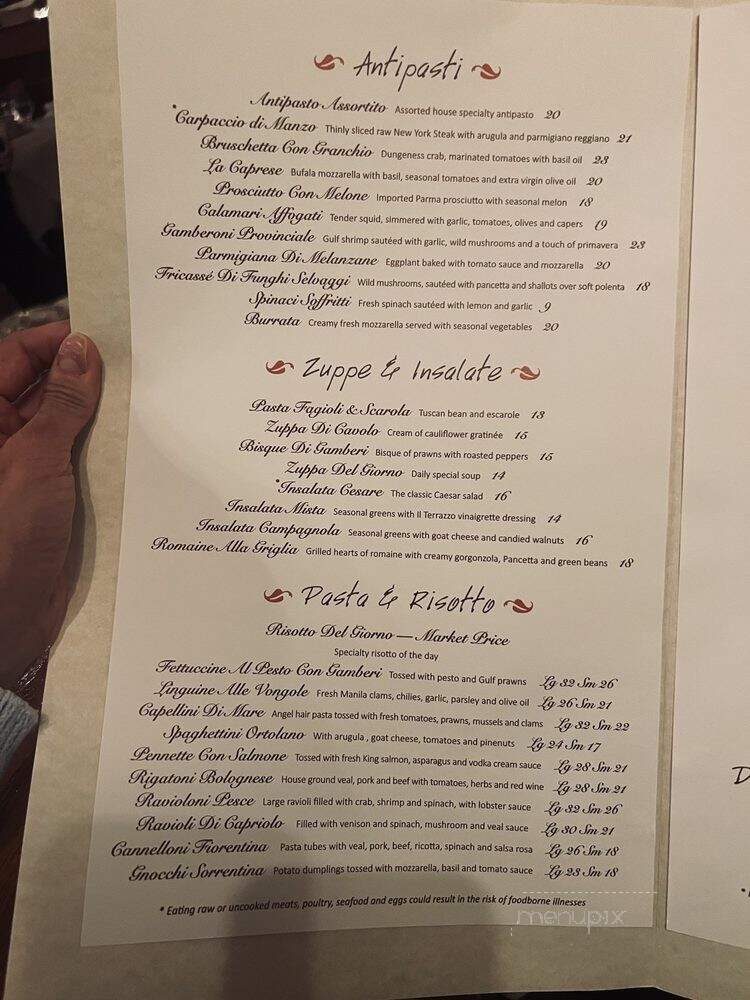 Antipasti
Antipasto Assortito Assorted house specialty antipasto 20
*Carpaccio di Manzo Thinly sliced raw New York Steak with arugula and parmigiano reggiano 21
Bruschetta Con Granchio Dungeness crab, marinated tomatoes with basil oil 23
La Caprese Bufala mozzarella with basil, seasonal tomatoes and extra virgin olive oil 20
Prosciutto Con Melone Imported Parma prosciutto with seasonal melon 18
Calamari Affogati Tender squid, simmered with garlic, tomatoes, olives and capers 19
Gamberoni Provinciale Gulf shrimp sautéed with garlic, wild mushrooms and a touch of primavera 23
Parmigiana Di Melanzane Eggplant baked with tomato sauce and mozzarella 20
Fricassé Di Funghi Selvaggi Wild mushrooms, sautéed with pancetta and shallots over soft polenta 18
Spinaci Soffritti Fresh spinach sautéed with lemon and garlic 9
Burrata Creamy fresh mozzarella served with seasonal vegetables 20
Zuppe & Insalate
Pasta Fagioli & Scarola Tuscan bean and escarole 13
Zuppa Di Cavolo Cream of cauliflower gratinée 15
Bisque Di Gamberi Bisque of prawns with roasted peppers 15
Zuppa Del Giorno Daily special soup 14
*Insalata Cesare The classic Caesar salad 16
Insalata Mista Seasonal greens with Il Terrazzo vinaigrette dressing 14
Insalata Campagnola Seasonal greens with goat cheese and candied walnuts 16
Romaine Alla Griglia Grilled hearts of romaine with creamy gorgonzola, Pancetta and green beans 18
Pasta & Risotto
Risotto Del Giorno — Market Price
Specialty risotto of the day
Fettuccine Al Pesto Con Gamberi Tossed with pesto and Gulf prawns Lg 32 Sm 26
Linguine Alle Vongole Fresh Manila clams, chilies, garlic, parsley and olive oil Lg 26 Sm 21
Capellini Di Mare Angel hair pasta tossed with fresh tomatoes, prawns, mussels and clams Lg 32 Sm 22
Spaghettini Ortolano With arugula , goat cheese, tomatoes and pinenuts Lg 24 Sm 17
Pennette Con Salmone Tossed with fresh King salmon, asparagus and vodka cream sauce Lg 28 Sm 21
Rigatoni Bolognese House ground veal, pork and beef with tomatoes, herbs and red wine Lg 28 Sm 21
Ravioloni Pesce Large ravioli filled with crab, shrimp and spinach, with lobster sauce Lg 32 Sm 26
Ravioli Di Capriolo Filled with venison and spinach, mushroom and veal sauce Lg 30 Sm 21
Cannelloni Fiorentina Pasta tubes with veal, pork, beef, ricotta, spinach and salsa rosa Lg 26 Sm 18
Gnocchi Sorrentina Potato dumplings tossed with mozzarella, basil and tomato sauce Lg 23 Sm 18
* Eating raw or uncooked meats, poultry, seafood and eggs could result in the risk of foodborne illnesses
menupix